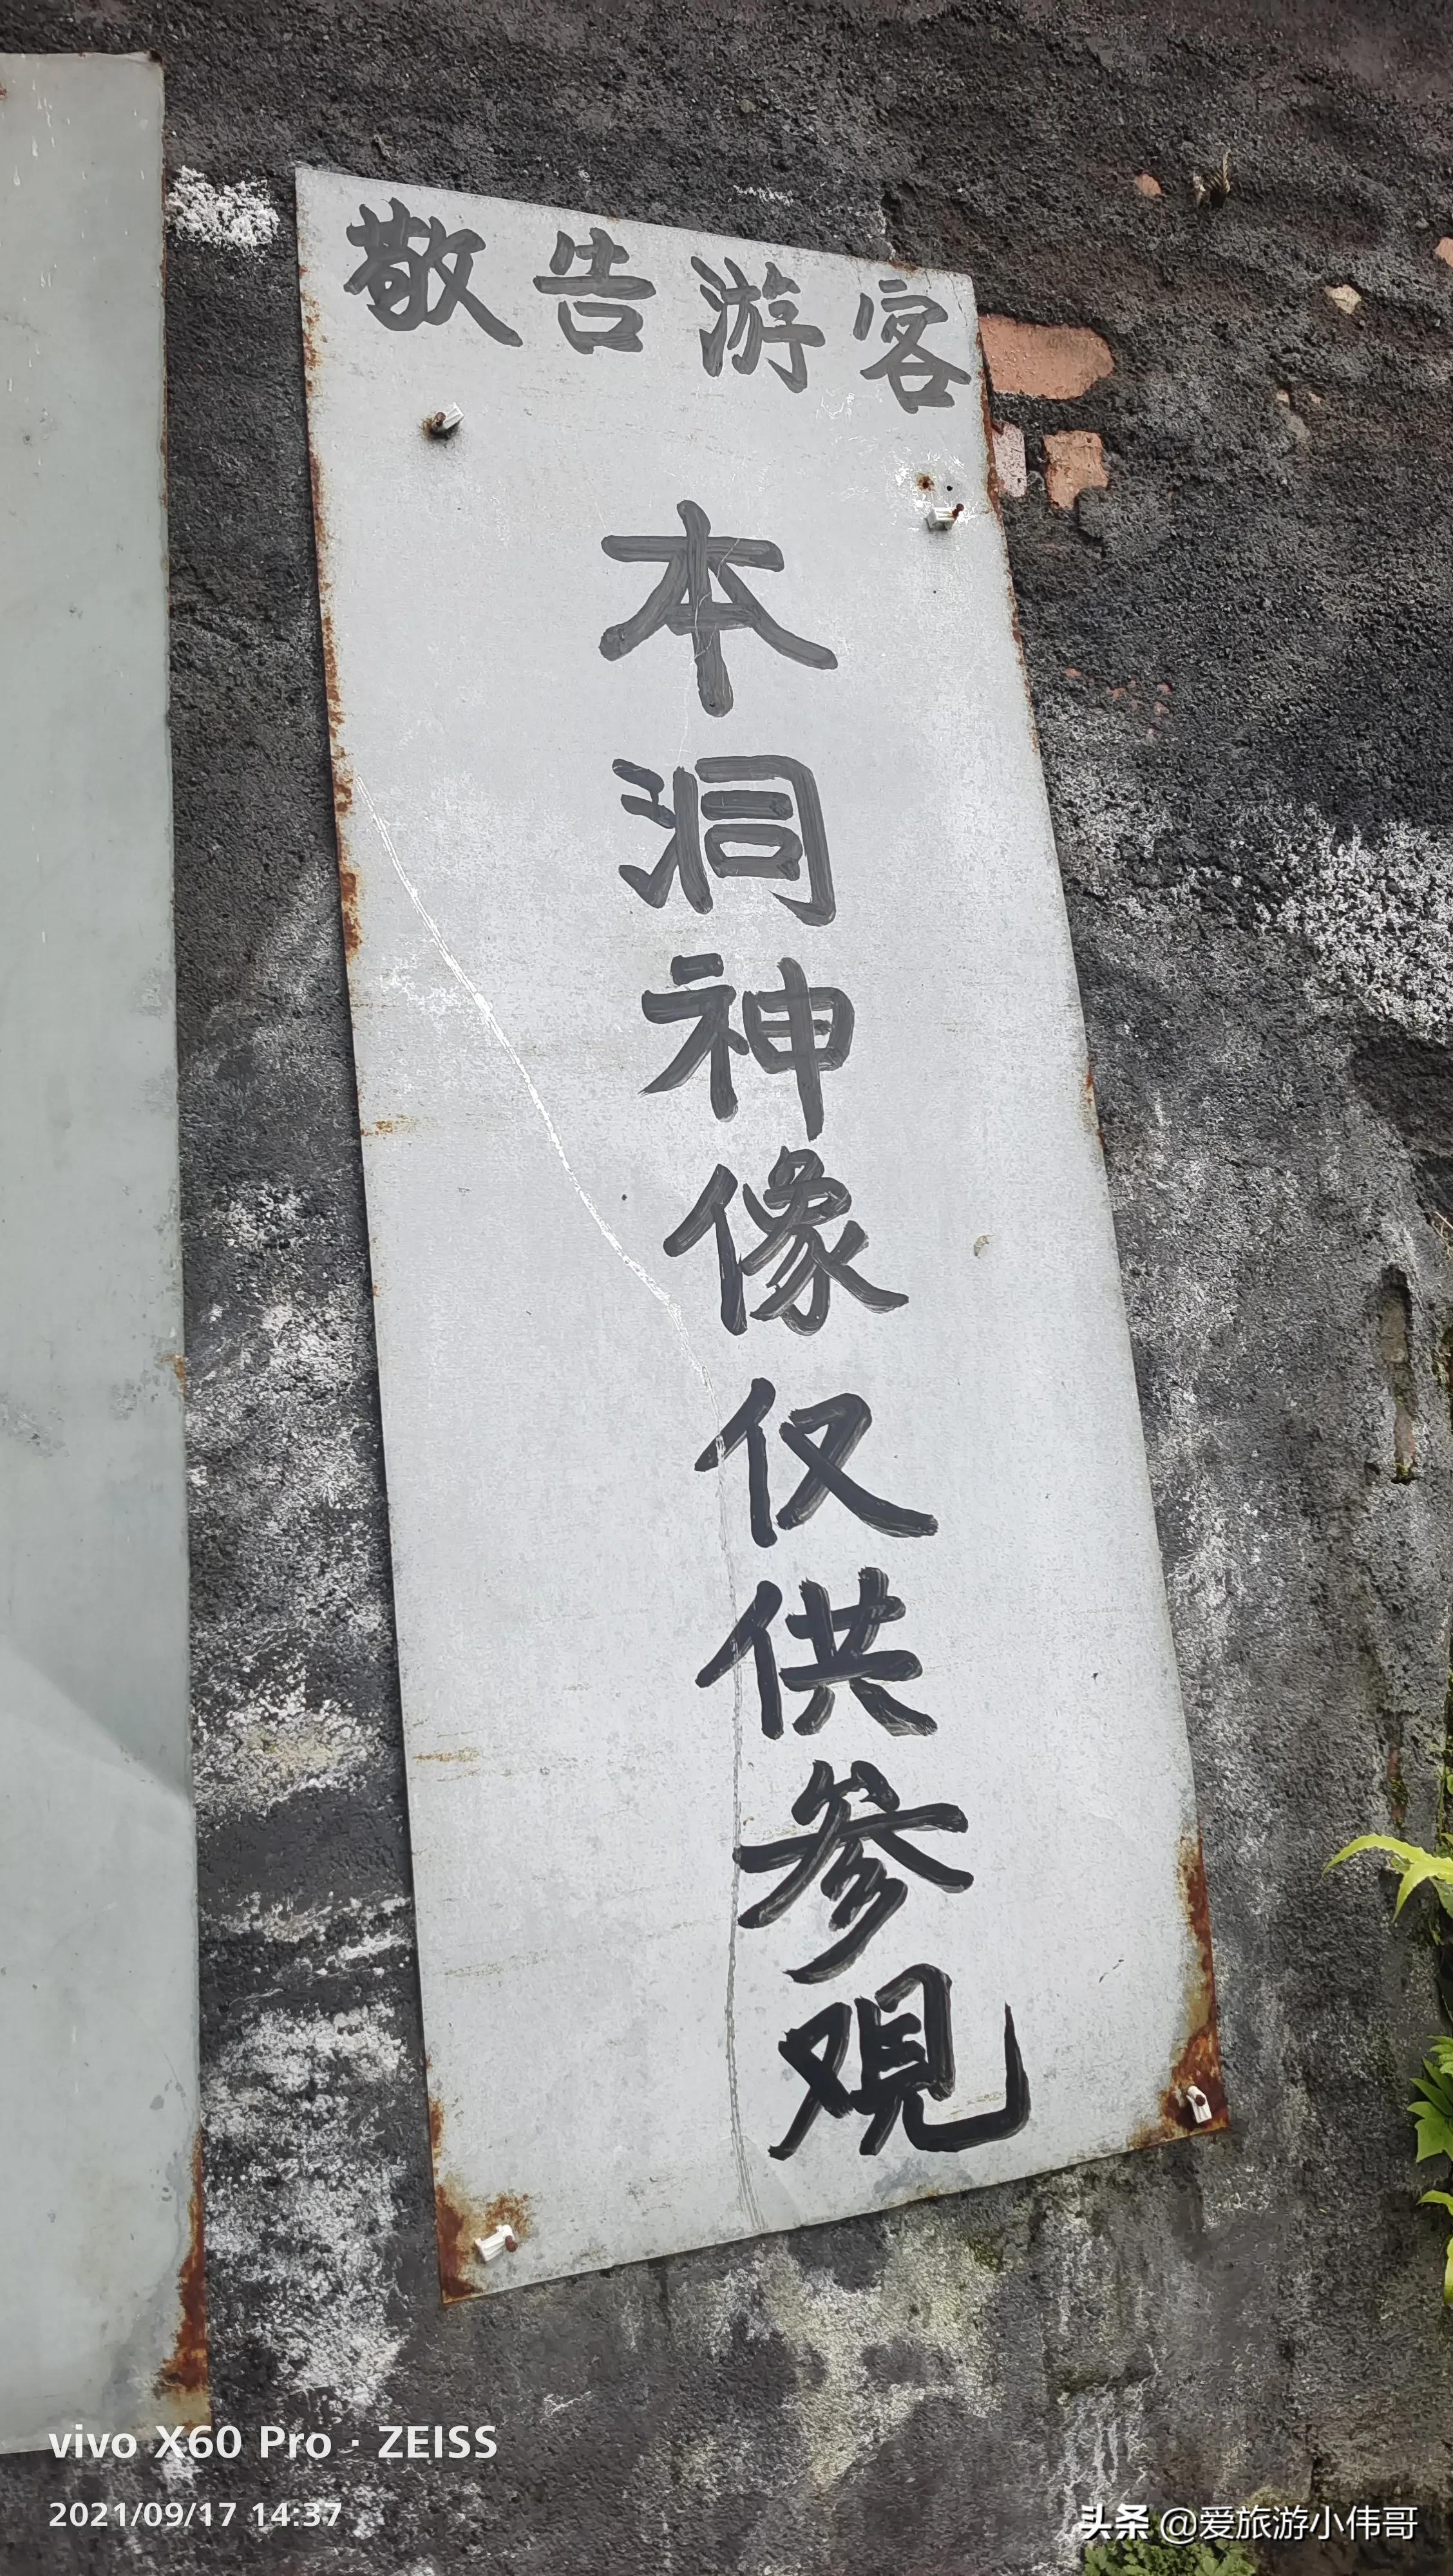 敬告游客
本洞神像仅供参观
vivo X60 Pro · ZEISS
2021/09/17 14:37
头条 @爱旅游小伟哥